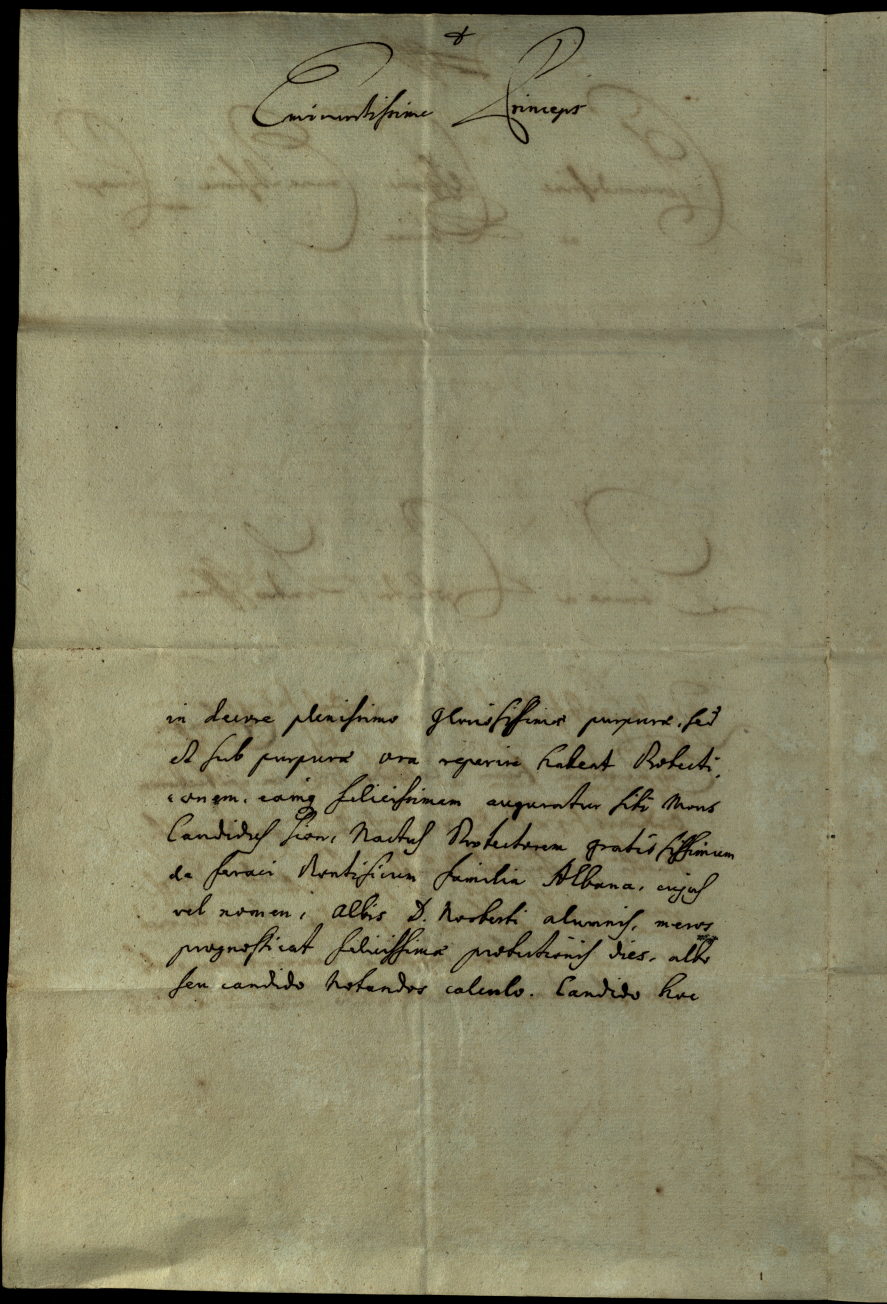 Eminentissime Princeps
in decore plenissimo gloriosissimæ purpuræ, sed
et sub purpuræ ora reperire habeat Protecti,
onem, eamq felicissimam auguratur sibi Mons
Candidus Sion, Nactus Protectorem gratiosissimum
de feraci Pontificum familia Albana, cujus
vel nomen, albis D. Norberti alumnis, meros
prognosticat felicissimæ protectionis dies, albo
seu candido notandos calculo. Candido hoc